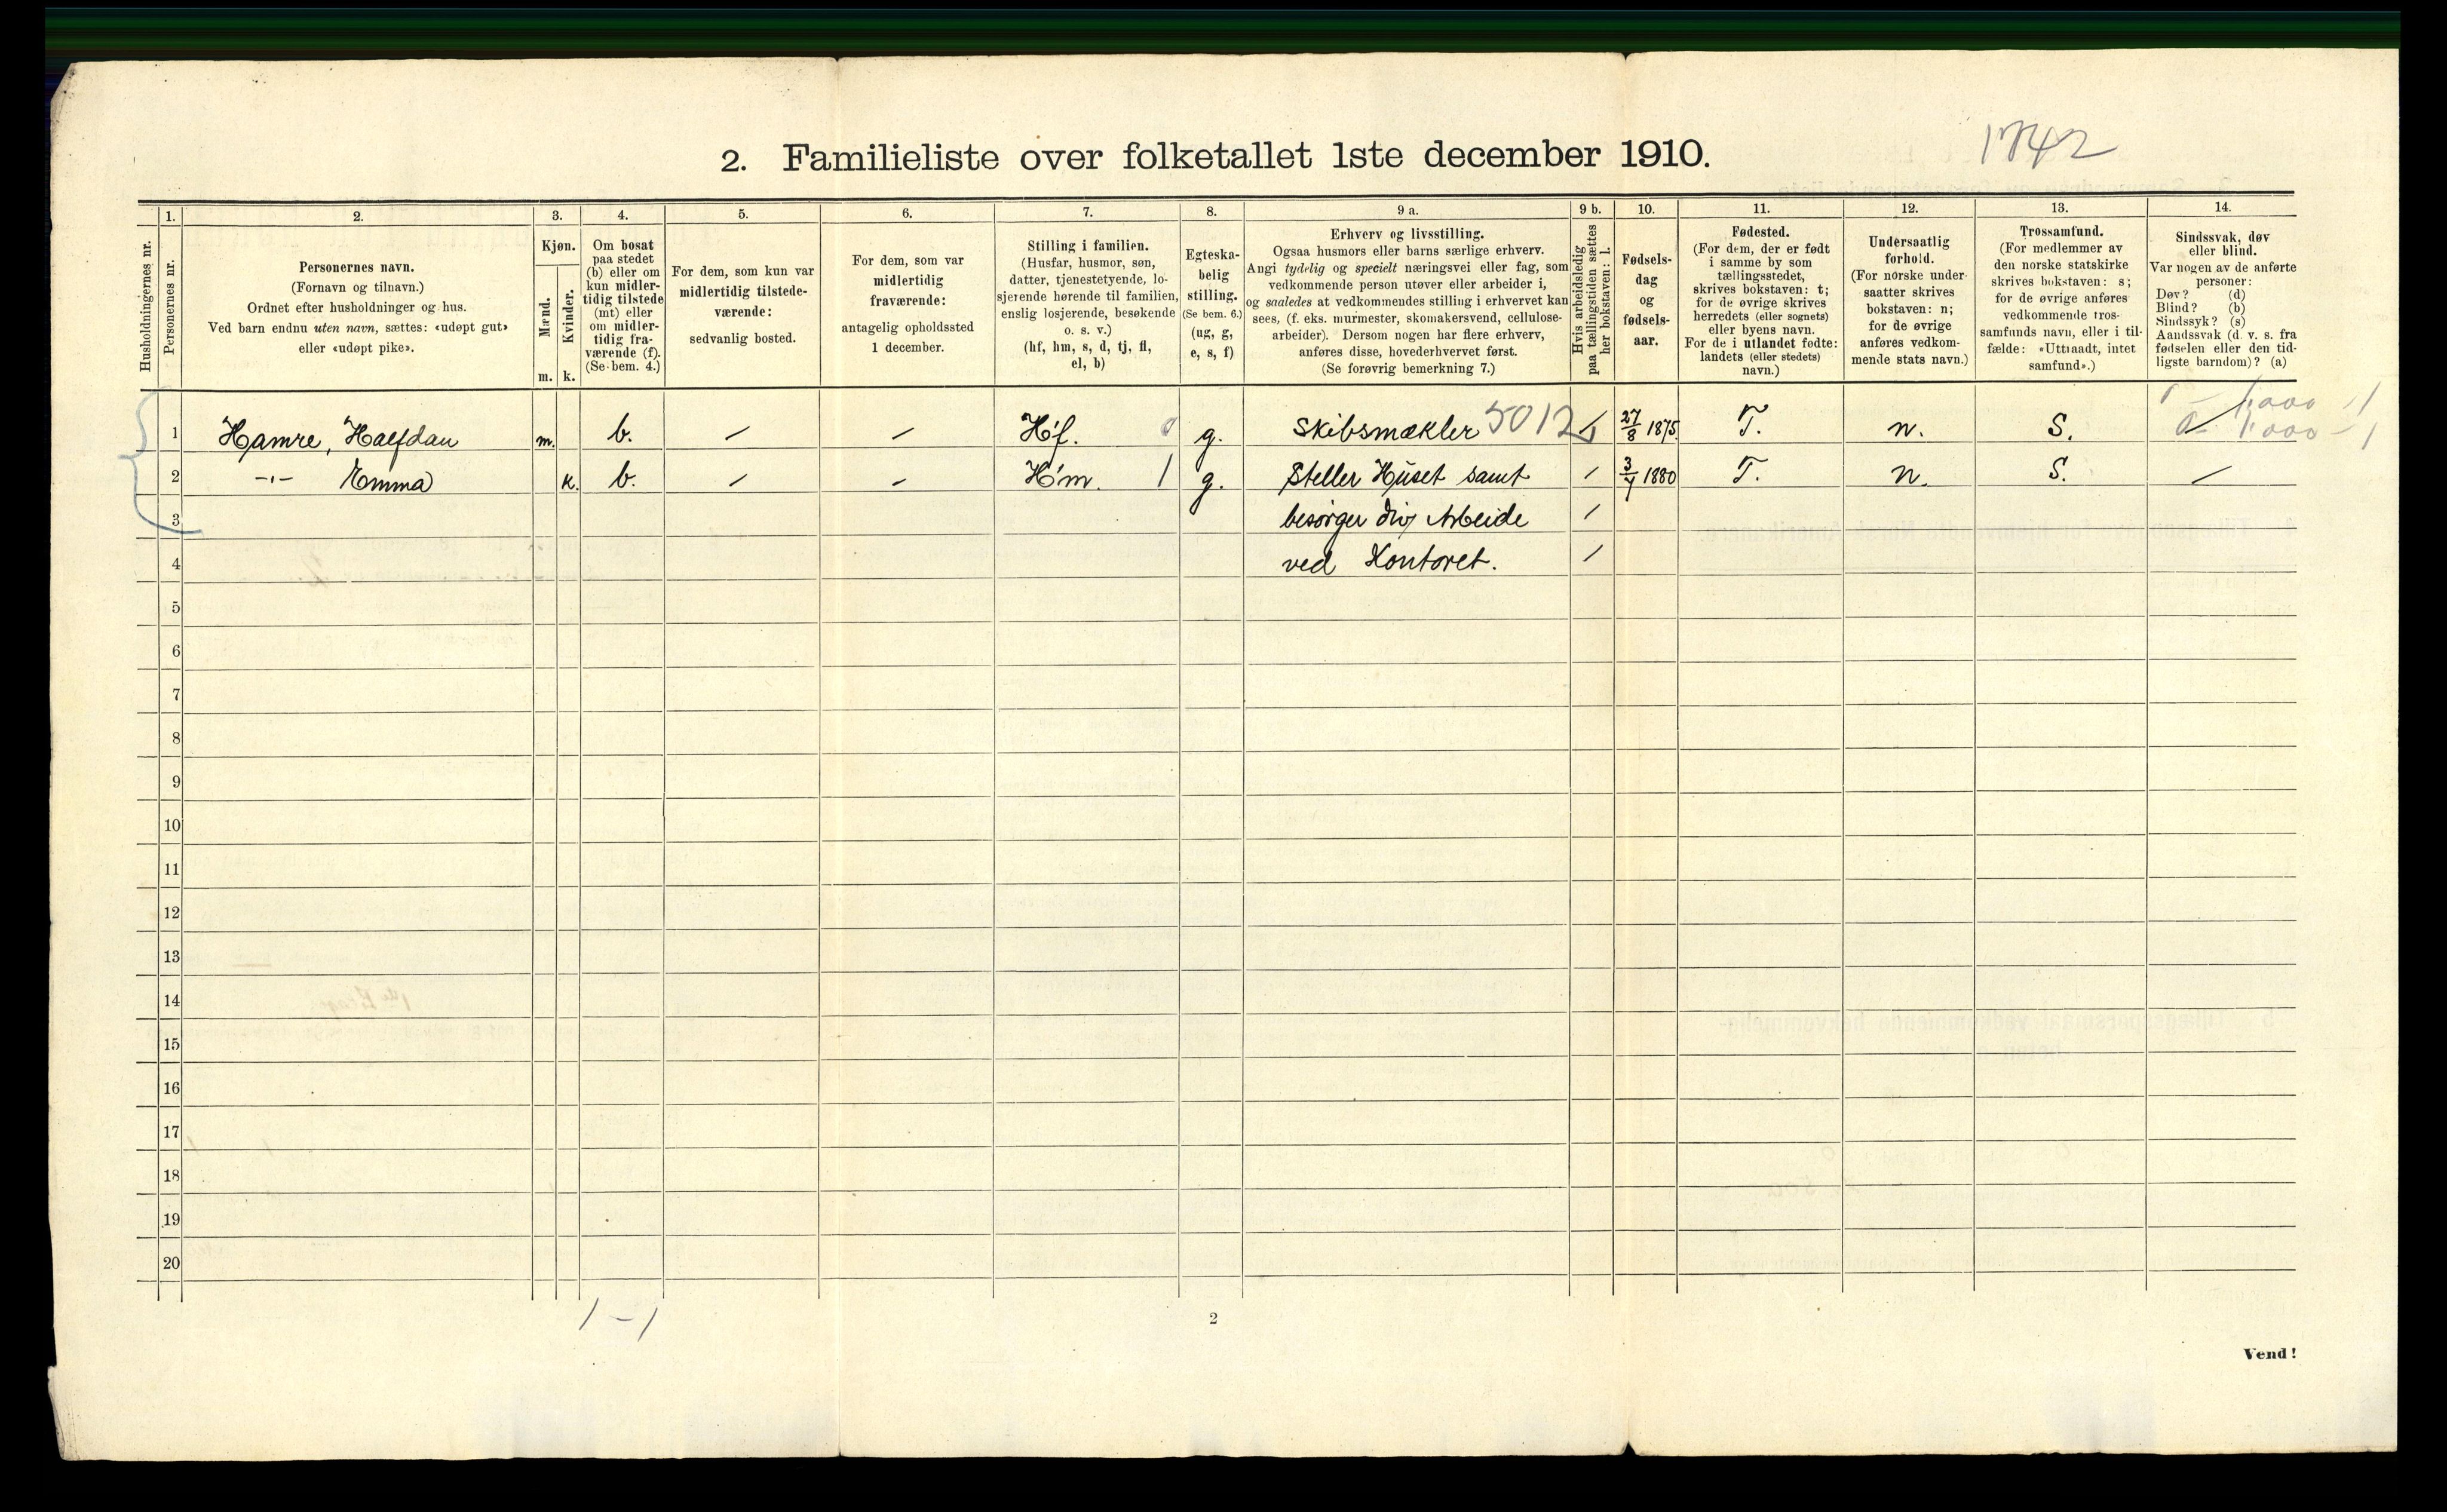 1742
2. Familieliste over folketallet 1ste december 1910.
Husholdningernes nr.
1.
Personernes nr.
2.
Personernes navn.
(Fornavn og tilnavn.)
Ordnet efter husholdninger og hus.
Ved barn endnu uten navn, sættes: «udøpt gut»
eller «udøpt pike».
3.
Kjøn.
Mænd.
m.
Kvinder.
k.
4.
Om bosat
paa stedet
(b) eller om
kun midler-
tidig tilstede
(mt) eller
om midler-
tidig fra-
værende (f).
(Se bem. 4.)
5.
For dem, som kun var
midlertidig tilstede-
værende:
sedvanlig bosted.
6.
For dem, som var
midlertidig
fraværende:
antagelig opholdssted
1 december.
7.
Stilling i familien.
(Husfar, husmor, søn,
datter, tjenestetyende, lo-
sjerende hørende til familien,
enslig losjerende, besøkende
o. s. v.)
(hf, hm, s, d, tj, fl,
el, b)
8.
Egteska-
belig
stilling.
(Se bem. 6.)
(ug, g,
e, s, f)
9 a.
Erhverv og livsstilling.
Ogsaa husmors eller barns særlige erhverv.
Angi tydelig og specielt næringsvei eller fag, som
vedkommende person utøver eller arbeider i,
og saaledes at vedkommendes stilling i erhvervet kan
sees, (f. eks. murmester, skomakersvend, cellulose-
arbeider). Dersom nogen har flere erhverv,
anføres disse, hovederhvervet først.
(Se forøvrig bemerkning 7.)
9 b.
Hvis arbeidsledig
paa tællingstiden sættes
her bokstaven: l.
10.
Fødsels-
dag
og
fødsels-
aar.
11.
Fødested.
(For dem, der er født
i samme by som
tællingsstedet,
skrives bokstaven: t;
for de øvrige skrives
herredets (eller sognets)
eller byens navn.
For de i utlandet fødte:
landets (eller stedets)
navn.)
12.
Undersaatlig
forhold.
(For norske under-
saatter skrives
bokstaven: n;
for de øvrige
anføres vedkom-
mende stats navn.)
13.
Trossamfund.
(For medlemmer av
den norske statskirke
skrives bokstaven: s;
for de øvrige anføres
vedkommende tros-
samfunds navn, eller i til-
fælde: «Uttraadt, intet
samfund».)
14.
Sindssvak, døv
eller blind.
Var nogen av de anførte
personer:
Døv? (d)
Blind? (b)
Sindssyk? (s)
Aandssvak (d. v. s. fra
fødselen eller den tid-
ligste barndom)? (a)
1 Hamre, Halfdan m. b. / / H.f. 0 g. Skibsmækler 5012 27/8 1875. T. n. S. /
2 -"- Emma k. b. / / H.m. 1 g. Steller Huset samt / 3/7 1880 T. n. S. /
3 besørger div Arbeide /
4 ved Kontoret. /
5
6
7
8
9
10
11
12
13
14
15
16
17
18
19
20
1 - 1
2
Vend!